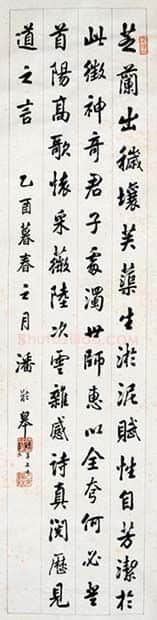 芝蘭出穢壤芙蕖生淤泥賦性自芳潔於
此徵神奇君子處濁世師惠以全夷何必登
首陽高歌懷采薇陸次雲雜感詩真閱歷見
道之言 乙酉暮春之月潘齡皋